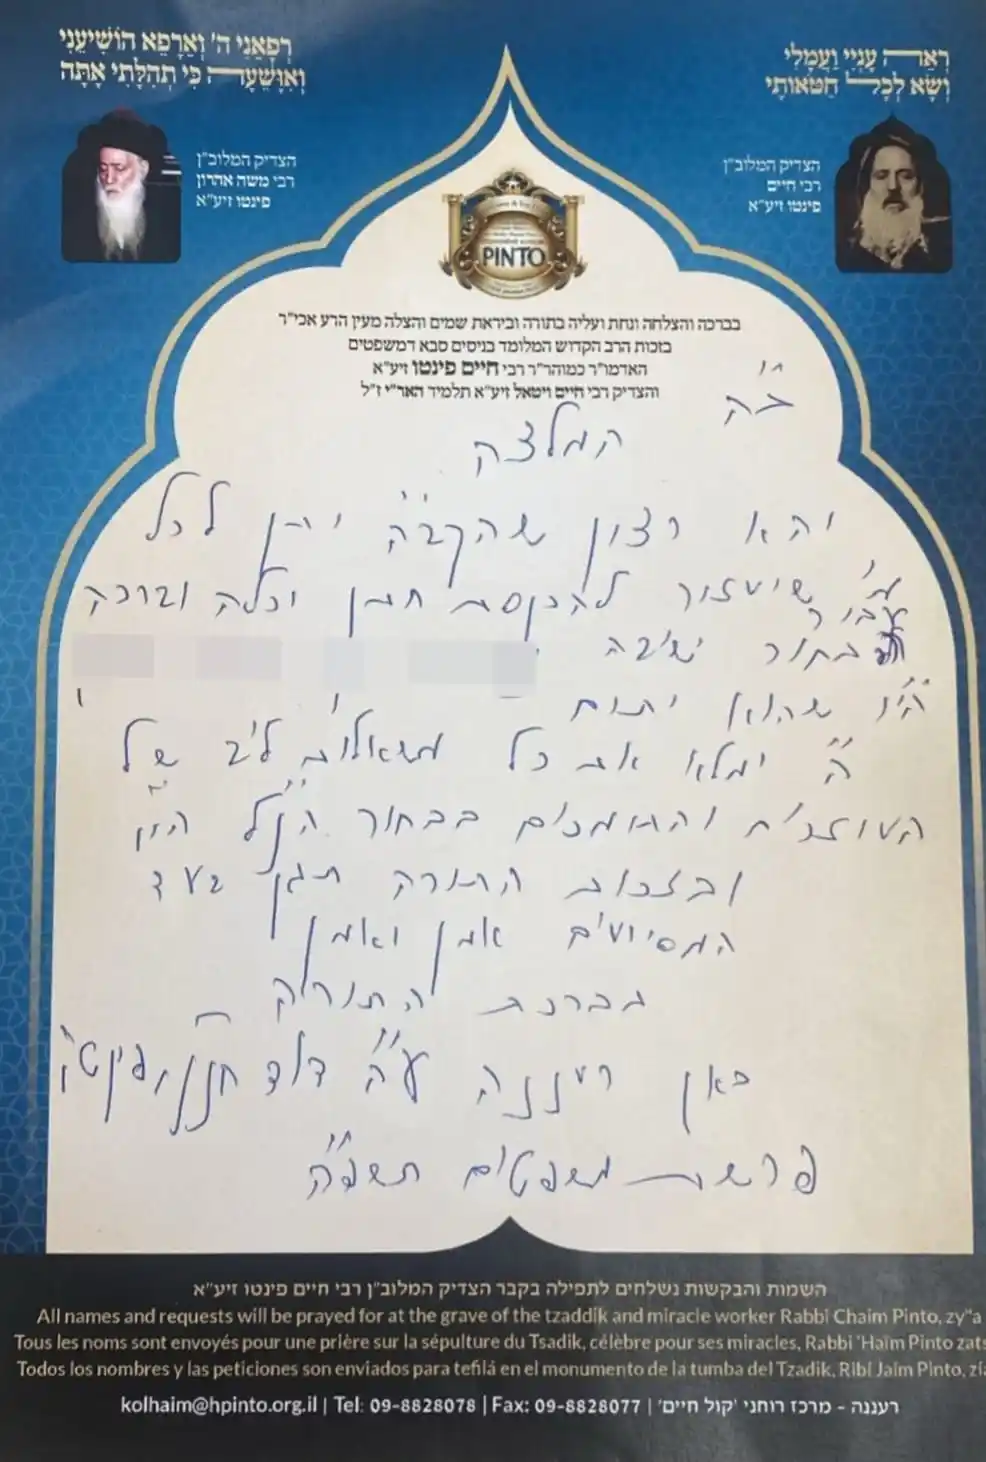 רְאֵה עָנְיִי וַעֲמָלִי
וְשָׂא לְכָל חַטֹּאותָי
רְפָאֵנִי ה' וְאֵרָפֵא הוֹשִׁיעֵנִי
וְאִוָּשֵׁעָה כִּי תְהִלָּתִי אָתָּה
הצדיק המלוב"ן
רבי חיים
פינטו זיע"א
הצדיק המלוב"ן
רבי משה אהרון
פינטו זיע"א
PINTO
בברכה והצלחה ונחת ועליה בתורה וביראת שמים והצלה מעין הרע אכי"ר
בזכות הרב הקדוש המלומד בניסים סבא דמשפטים
האדמו"ר כמוהר"ר רבי חיים פינטו זיע"א
והצדיק רבי חיים ויטאל זיע"א תלמיד האר"י ז"ל
המלצה
יהא רצון שהקב"ה יתן לכל
מי שיעזור להכנסת חתן וכלה וברכה
עבור
בחור ישיבה
הי"ו שהוא יתום
ה' ימלא את כל משאלות ליב של
העוזרים והתומכים בבחור הנ"ל הי"ו
ובזכות התורה תגן בעד
המסייעים אמן ואמן
בברכת התורה
כאן רעננה ע"ה דוד חנניה פינטו
פרשת משפטים תשפ"ה
השמות והבקשות נשלחים לתפילה בקבר הצדיק המלוב"ן רבי חיים פינטו זיע"א
All names and requests will be prayed for at the grave of the tzaddik and miracle worker Rabbi Chaim Pinto, zy"a
Tous les noms sont envoyés pour une prière sur la sépulture du Tsadik, célèbre pour ses miracles, Rabbi 'Haïm Pinto zats
Todos los nombres y las peticiones son enviados para tefilá en el monumento de la tumba del Tzadik, Ribí Jaím Pinto, zia
kolhaim@hpinto.org.il | Tel: 09-8828078 | Fax: 09-8828077 | רעננה - מרכז רוחני 'קול חיים'